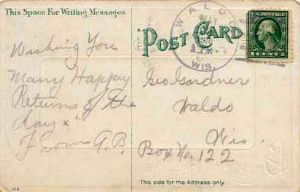 This Space For Writing Messages
POST CARD
WALDO
WIS.
Wishing You
Many Happy
Returns of the
Day x
From G.B.
Geo Gardner
Waldo
Wis.
Box No. 122
This side for the Address only.